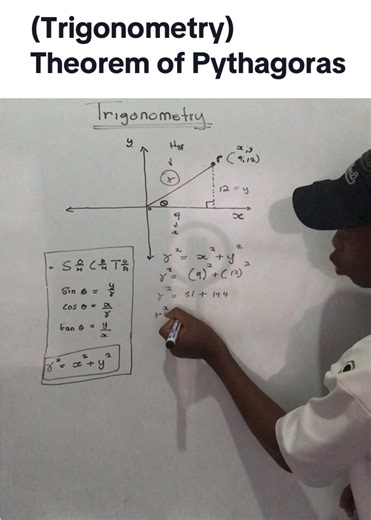 (Trigonometry)
Theorem of Pythagoras
Trigonometry
y
Hyp
x, y
P (9, 12)
r
12 = y
θ
9
x
x
- S O/H C A/H T O/A
Sin θ = y/r
cos θ = x/r
tan θ = y/x
r² = x² + y²
r² = x² + y²
r² = (9)² + (12)²
r² = 81 + 144
r²